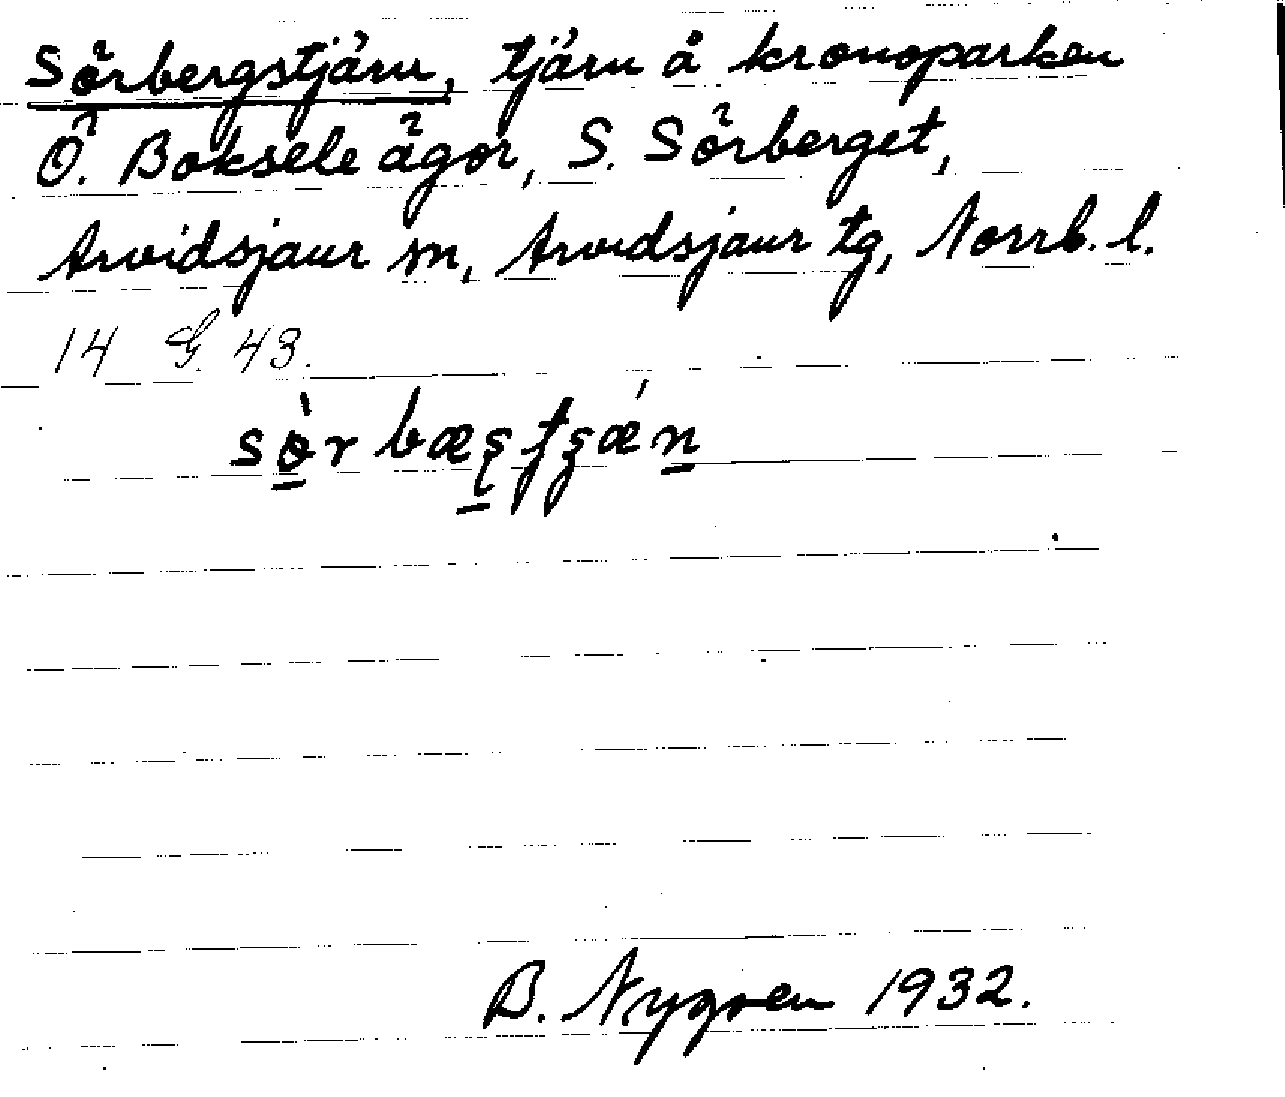 Sörbergstjärn, tjärn å kronoparken
Ö. Boksele ägor, S. Sörberget,
Arvidsjaur sn, Arvidsjaur tg, Norrb. l.
14 G. 43.
B. Nygren 1932.